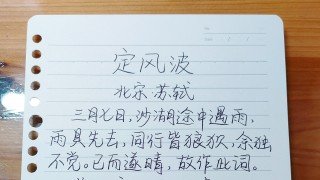 定风波
北宋 苏轼
三月七日，沙湖途中遇雨，
雨具先去，同行皆狼狈，余独
不觉。已而遂晴，故作此词。